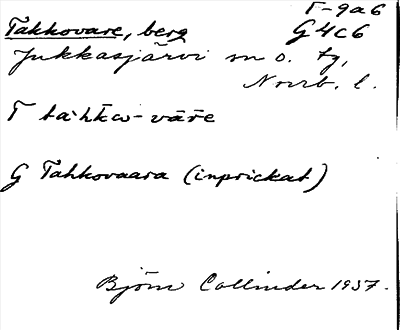 Takkovare, berg T-9a6
G4c6
Jukkasjärvi sn o. tg,
Norrb. l.
T ta·hkω-vāre
G Tahkovaara (inprickat)
Björn Collinder 1937.